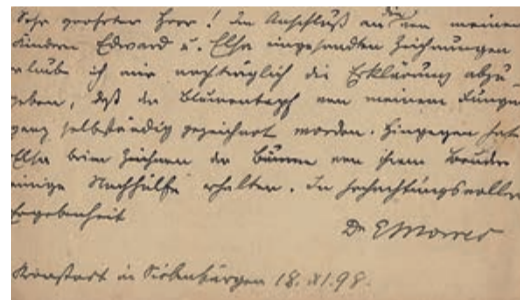 Sehr geehrter Herr! Im Anschluß an die von meinen
Kindern Edward u. Elsa eingesandten Zeichnungen
erlaube ich mir nachträglich die Erklärung abzu-
geben, daß der Blumentopf von meinem Jungen
ganz selbständig gezeichnet worden. Hingegen hat
Elsa beim Zeichnen der Bäume von ihrem Bruder
einige Nachhülfe erhalten. In hochachtungsvoller
Ergebenheit
Dr EMorres
Kronstadt in Siebenbürgen 18.XI.98.